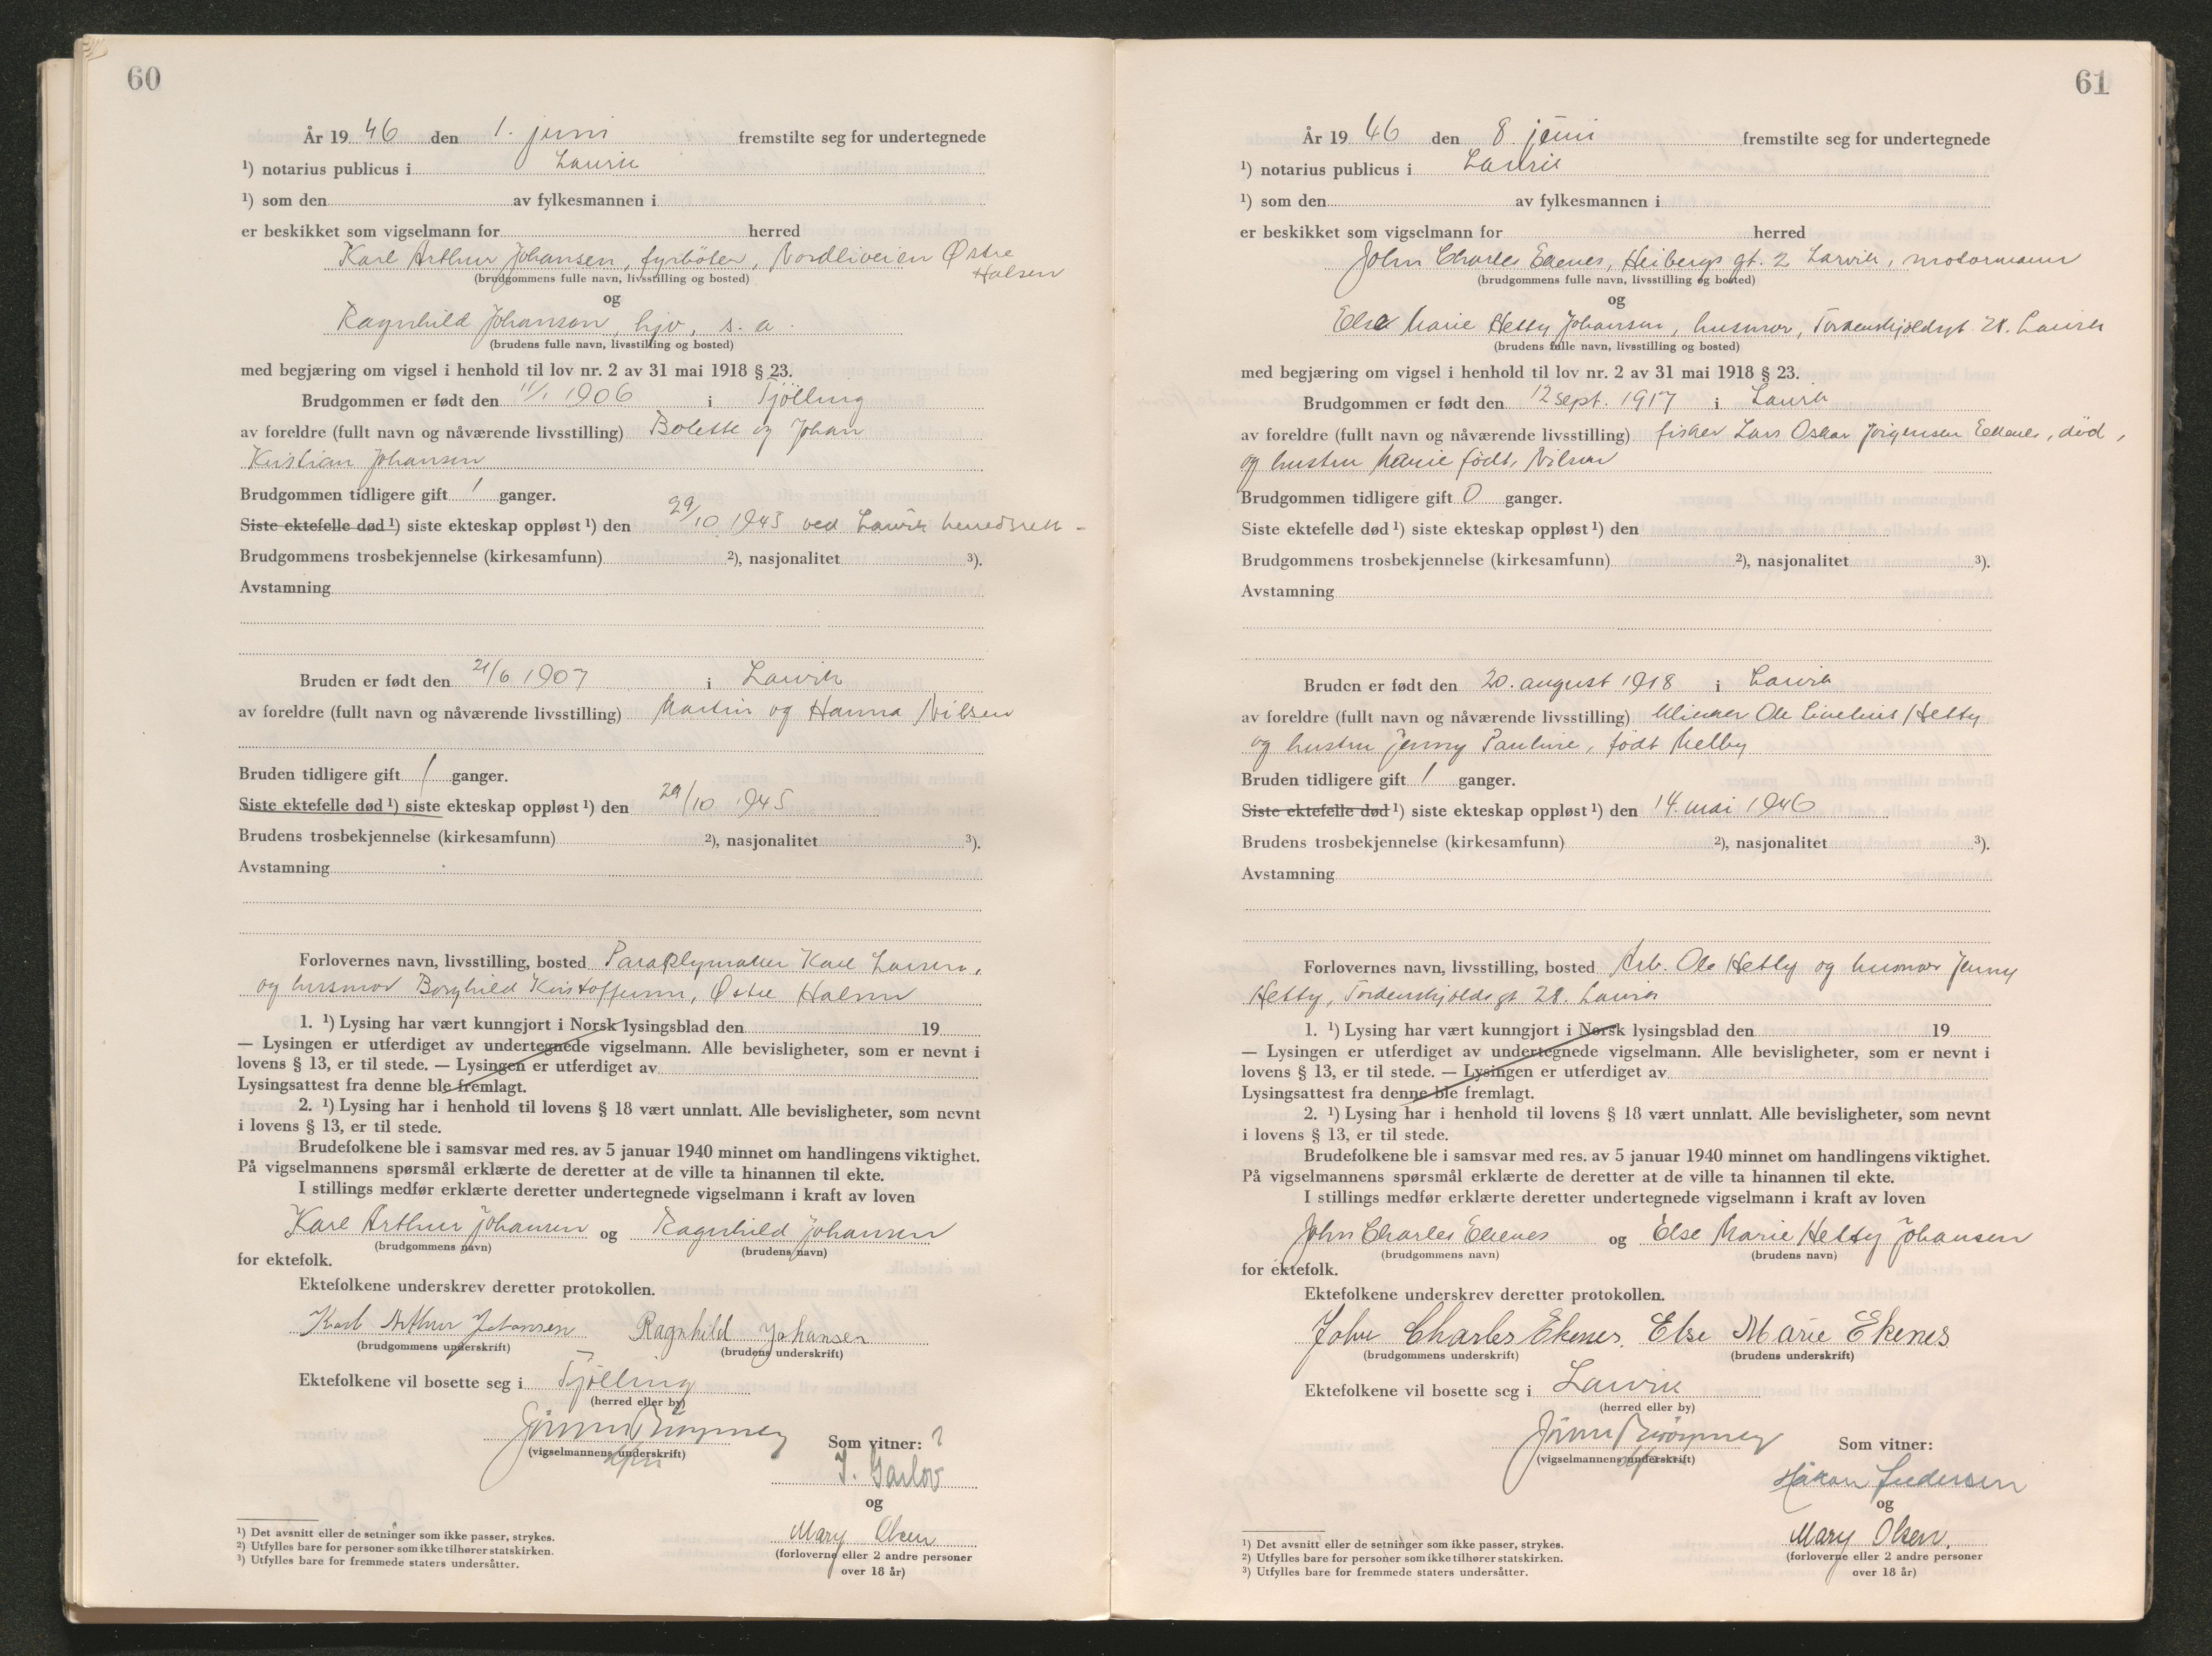 60
År 19 46 den 1. juni fremstilte seg for undertegnede
¹) notarius publicus i Larvik
¹) som den av fylkesmannen i
er beskikket som vigselmann for herred
Karl Arthur Johansen, fyrböter, Nordliveien Østre
Halsen
(brudgommens fulle navn, livsstilling og bosted)
og
Ragnhild Johansen, hjv., s. a.
(brudens fulle navn, livsstilling og bosted)
med begjæring om vigsel i henhold til lov nr. 2 av 31 mai 1918 § 23.
Brudgommen er født den 11/1 1906 i Tjölling
av foreldre (fullt navn og nåværende livsstilling) Bolette og Johan
Kristian Johansen
Brudgommen tidligere gift 1 ganger.
Siste ektefelle død ¹) siste ekteskap oppløst ¹) den 29/10 1945 ved Larvik herredsrett -
Brudgommens trosbekjennelse (kirkesamfunn) ²), nasjonalitet ³).
Avstamning
Bruden er født den 21/6 1907 i Larvik
av foreldre (fullt navn og nåværende livsstilling) Martin og Hanna Nilsen
Bruden tidligere gift 1 ganger.
Siste ektefelle død ¹) siste ekteskap oppløst ¹) den 29/10 1945
Brudens trosbekjennelse (kirkesamfunn) ²), nasjonalitet ³).
Avstamning
Forlovernes navn, livsstilling, bosted Paraplymaker Karl Larsen,
og husmor Borghild Kristoffersen, Østre Halsen
1. ¹) Lysing har vært kunngjort i Norsk lysingsblad den 19
— Lysingen er utferdiget av undertegnede vigselmann. Alle bevisligheter, som er nevnt i
lovens § 13, er til stede. — Lysingen er utferdiget av
Lysingsattest fra denne ble fremlagt.
2. ¹) Lysing har i henhold til lovens § 18 vært unnlatt. Alle bevisligheter, som nevnt
i lovens § 13, er til stede.
Brudefolkene ble i samsvar med res. av 5 januar 1940 minnet om handlingens viktighet.
På vigselmannens spørsmål erklærte de deretter at de ville ta hinannen til ekte.
I stillings medfør erklærte deretter undertegnede vigselmann i kraft av loven
Karl Arthur Johansen og Ragnhild Johansen
(brudgommens navn) (brudens navn)
for ektefolk.
Ektefolkene underskrev deretter protokollen.
Karl Arthur Johansen Ragnhild Johansen
(brudgommens underskrift) (brudens underskrift)
Ektefolkene vil bosette seg i Tjølling
(herred eller by)
(vigselmannens underskrift)
Som vitner:
J. Garlov
og
Mary Olsen
(forloverne eller 2 andre personer
over 18 år)
¹) Det avsnitt eller de setninger som ikke passer, strykes.
²) Utfylles bare for personer som ikke tilhører statskirken.
³) Utfylles bare for fremmede staters undersåtter.
61
År 19 46 den 8 juni fremstilte seg for undertegnede
¹) notarius publicus i Larvik
¹) som den av fylkesmannen i
er beskikket som vigselmann for herred
John Charles Ekenes, Heibergs gt. 2 Larvik, motormann
(brudgommens fulle navn, livsstilling og bosted)
og
Else Marie Hetty Johansen, husmor, Tordenskjoldsgt 28. Larvik
(brudens fulle navn, livsstilling og bosted)
med begjæring om vigsel i henhold til lov nr. 2 av 31 mai 1918 § 23.
Brudgommen er født den 12 sept. 1917 i Larvik
av foreldre (fullt navn og nåværende livsstilling) fisker Lars Oskar Jörgensen Ekenes, död,
og hustru Marie født, Nilsen
Brudgommen tidligere gift 0 ganger.
Siste ektefelle død ¹) siste ekteskap oppløst ¹) den
Brudgommens trosbekjennelse (kirkesamfunn) ²), nasjonalitet ³).
Avstamning
Bruden er født den 20. august 1918 i Larvik
av foreldre (fullt navn og nåværende livsstilling) Ole Hetty
og hustru Jenny Pauline, født Melby
Bruden tidligere gift 1 ganger.
Siste ektefelle død ¹) siste ekteskap oppløst ¹) den 14. mai 1946
Brudens trosbekjennelse (kirkesamfunn) ²), nasjonalitet ³).
Avstamning
Forlovernes navn, livsstilling, bosted Arb. Ole Hetty og husmor Jenny
Hetty, Tordenskjoldsgt 28. Larvik
1. ¹) Lysing har vært kunngjort i Norsk lysingsblad den 19
— Lysingen er utferdiget av undertegnede vigselmann. Alle bevisligheter, som er nevnt i
lovens § 13, er til stede. — Lysingen er utferdiget av
Lysingsattest fra denne ble fremlagt.
2. ¹) Lysing har i henhold til lovens § 18 vært unnlatt. Alle bevisligheter, som nevnt
i lovens § 13, er til stede.
Brudefolkene ble i samsvar med res. av 5 januar 1940 minnet om handlingens viktighet.
På vigselmannens spørsmål erklærte de deretter at de ville ta hinannen til ekte.
I stillings medfør erklærte deretter undertegnede vigselmann i kraft av loven
John Charles Ekenes og Else Marie Hetty Johansen
(brudgommens navn) (brudens navn)
for ektefolk.
Ektefolkene underskrev deretter protokollen.
John Charles Ekenes. Else Marie Ekenes
(brudgommens underskrift) (brudens underskrift)
Ektefolkene vil bosette seg i Larvik
(herred eller by)
(vigselmannens underskrift)
Som vitner:
Håkon Pedersen
og
Mary Olsen.
(forloverne eller 2 andre personer
over 18 år)
¹) Det avsnitt eller de setninger som ikke passer, strykes.
²) Utfylles bare for personer som ikke tilhører statskirken.
³) Utfylles bare for fremmede staters undersåtter.